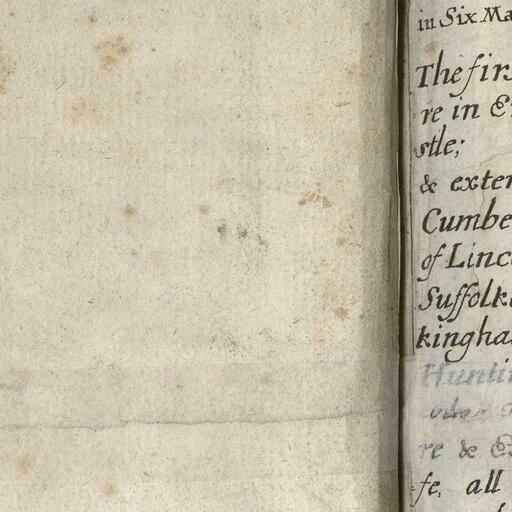 in Six Ma
The firs
re in E
stle;
& exten
Cumbe
of Linco
Suffolk
kingha
Hunti
re & E
fe, all